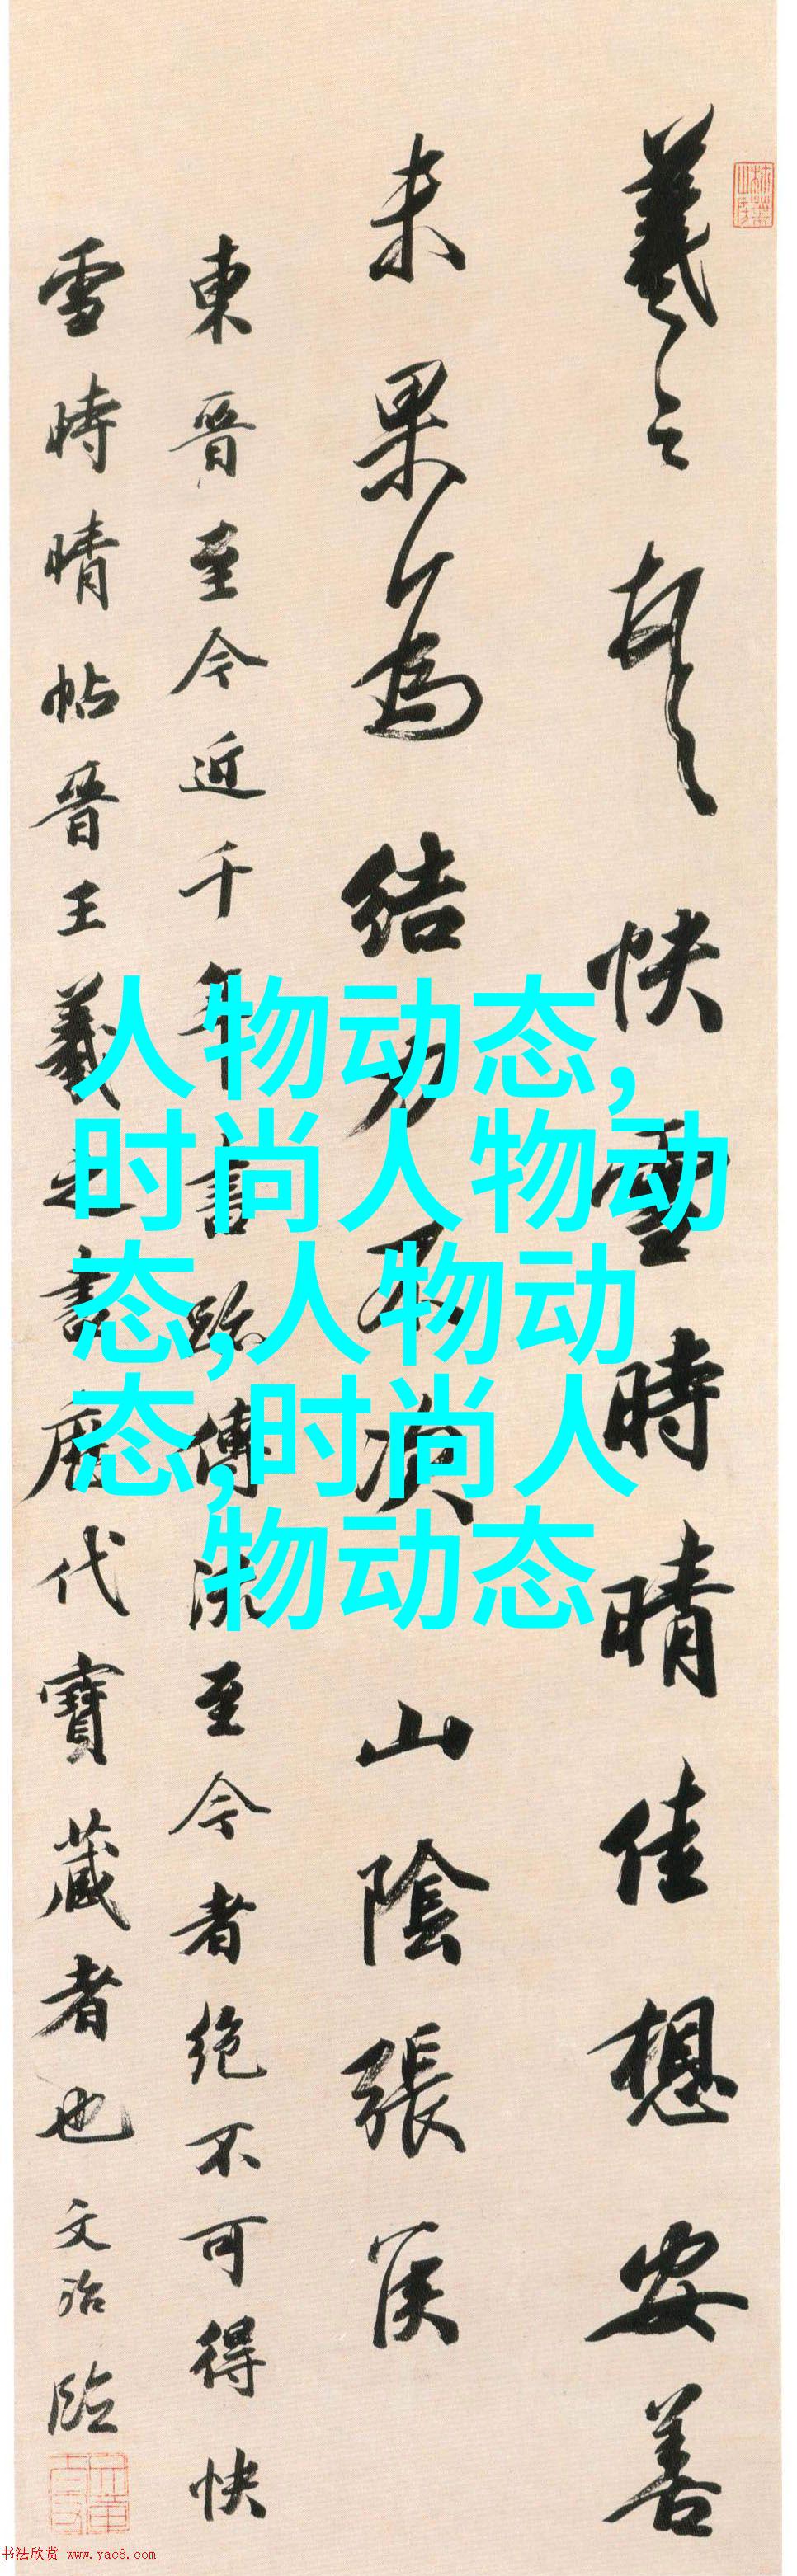 羲之頓快雪時晴佳想安善
未果為結力不次山陰張侯
東晉至今近千年書跡傳流至今者絶不可得快
雪時晴帖晉王羲之書歷代寶藏者也文治臨
人物动态,
时尚人物动
态,人物动
态,时尚人
物动态
书法欣赏 www.yac8.com